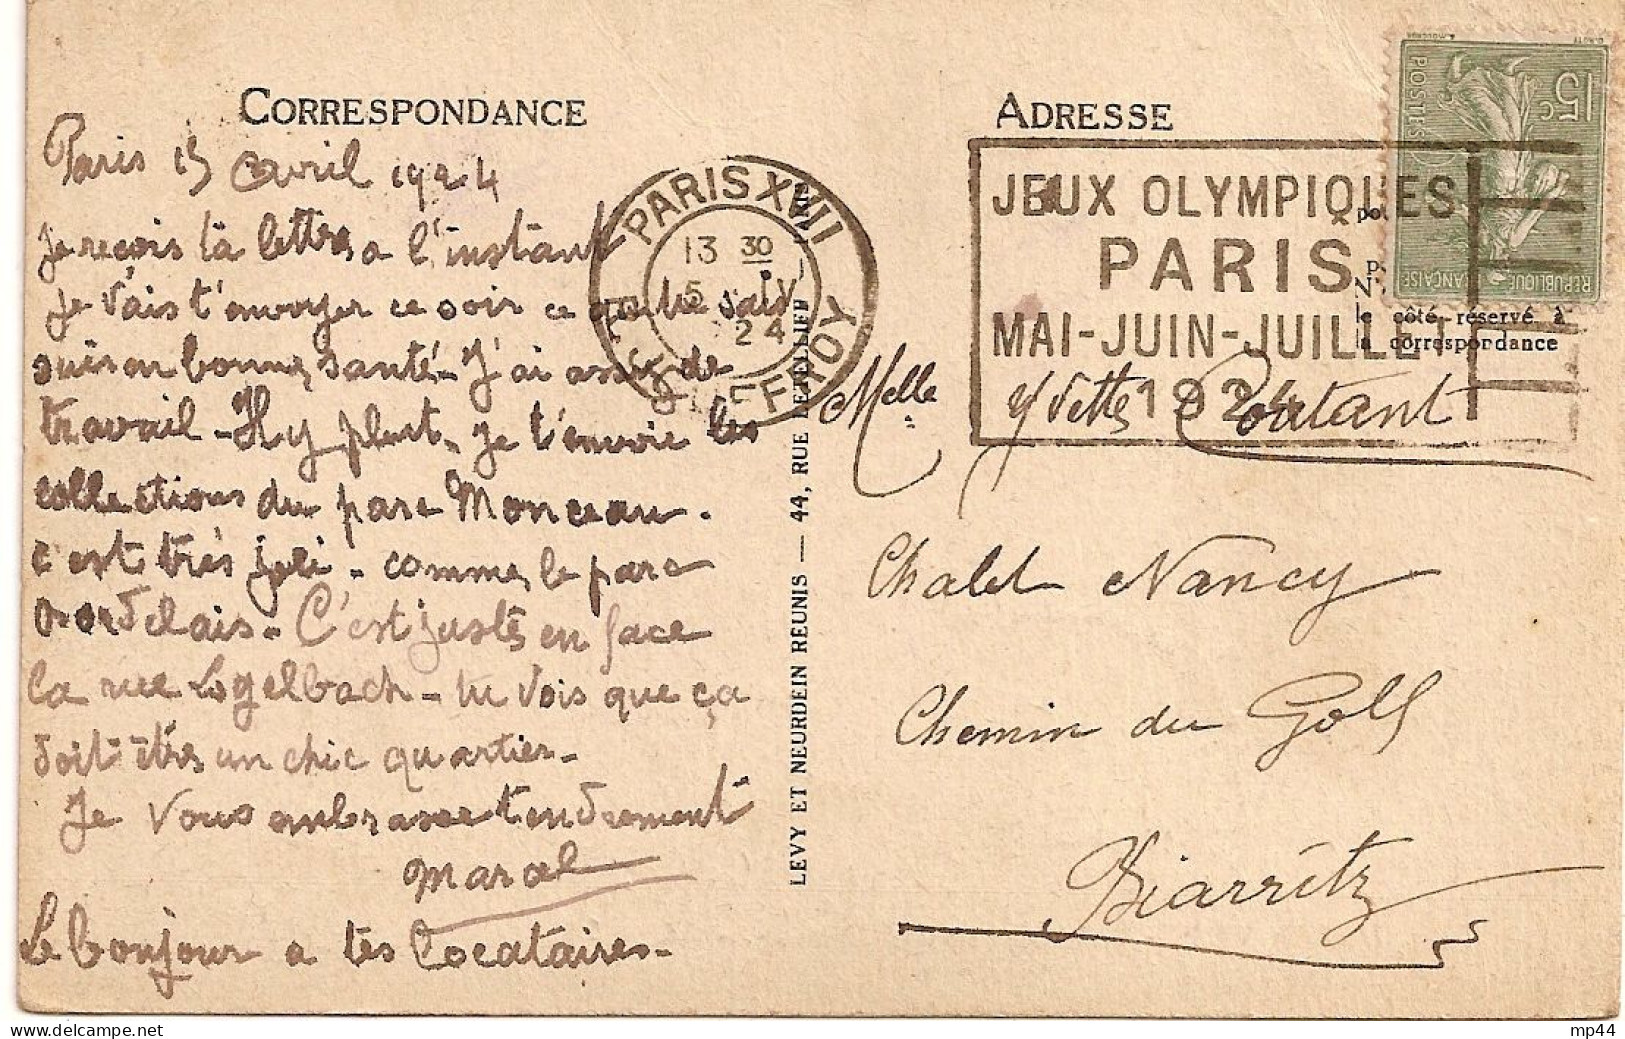 CORRESPONDANCE
Paris 15 Avril 1924
Je reçois ta lettre a l'instant
Je vais t'envoyer ce soir ce
suis en bonne santé - J'ai assez de
travail - Il y pleut - Je t'envoie les
collections du parc Monceau.
c'est très joli - comme le parc
Bordelais - C'est juste en face
la rue Logelbach - tu vois que ça
doit être un chic quartier -
Je vous embrasse tendrement
Marcel
Le bonjour a tes locataires -
PARIS XVII
13 30
5 IV
24
AV. JOUFFROY
LEVY ET NEURDEIN REUNIS — 44, RUE LETELLIER
ADRESSE
JEUX OLYMPIQUES
PARIS
MAI-JUIN-JUILLET
1924
le côté réservé à
la correspondance
15c
POSTES
REPUBLIQUE FRANÇAISE
O. ROTY
Melle Yvette Coutant
Chalet Nancy
Chemin du Golf
Biarritz
delcampe.net
mp44